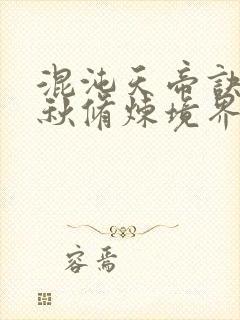 混沌天帝訣
秋脩煉境界
容焉